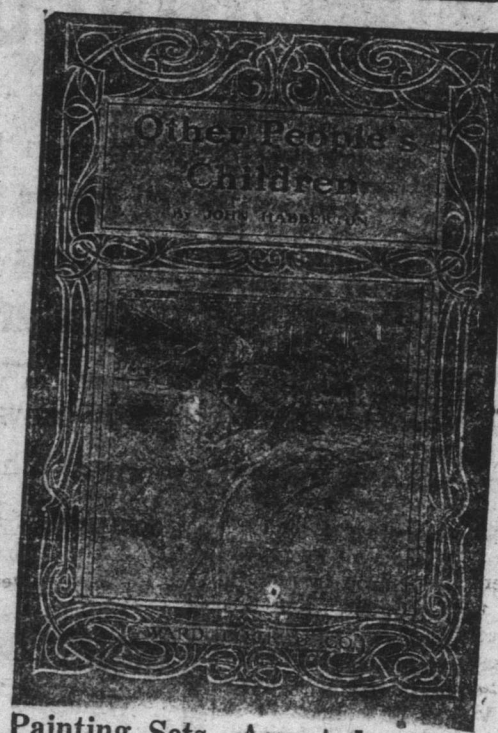 Other People's
Children
By JOHN HABBERTON
WARD, LOCK & CO
Painting Sets